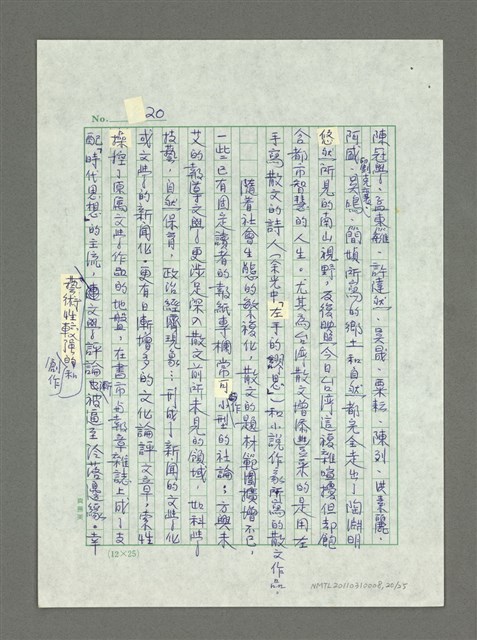 No. 20
陳冠學、孟東籬、許達然、吳晟、粟耘、陳列、洪素麗、
阿盛、劉克襄、吳鳴、簡媜所寫的鄉土和自然都完全走出了陶淵明
悠然所見的南山視野,反映今日台灣這複雜喧擾但却飽
含都市智慧的人生。尤其為台灣散文增添異采的是用左
手寫散文的詩人(余光中「左手的繆思」)和小說作家所寫的散文作品。
隨着社會生態的敏複化,散文的題材範圍擴增不已,
一些已有固定讀者的報紙專欄常可作小型的社論;方興未
艾的報導文學更涉足深入散文前所未見的領域,如科學
技藝,自然保育,政治經濟現象…形成了新聞的文學化
或文學的新聞化。更有日漸增多的文化論評文章,索性
操控了原屬文學作品的地盤,在書市與報章雜誌上成了支
配「時代思想」的主流,連文學評論也漸被逼至冷落邊緣。幸
藝術性較強的和
創作
(12×25)
NMTL20110310008, 20/25